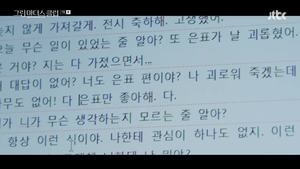 그린마더스클럽
jtbc
늦지 않게 가져갈게. 전시 축하해. 고생했어.
오늘 무슨 일이 있었는 줄 알아? 또 은표가 날 괴롭혔어.
거야? 지는 다 가졌으면서...
대답이 없어? 너도 은표 편이야? 나 괴로워 죽겠는데
아무도 없어! 다 은표만 좋아해. 다.
니가 무슨 생각하는지 모르는 줄 알아?
항상 이런 식이야. 나한테 관심이 하나도 없지. 이런